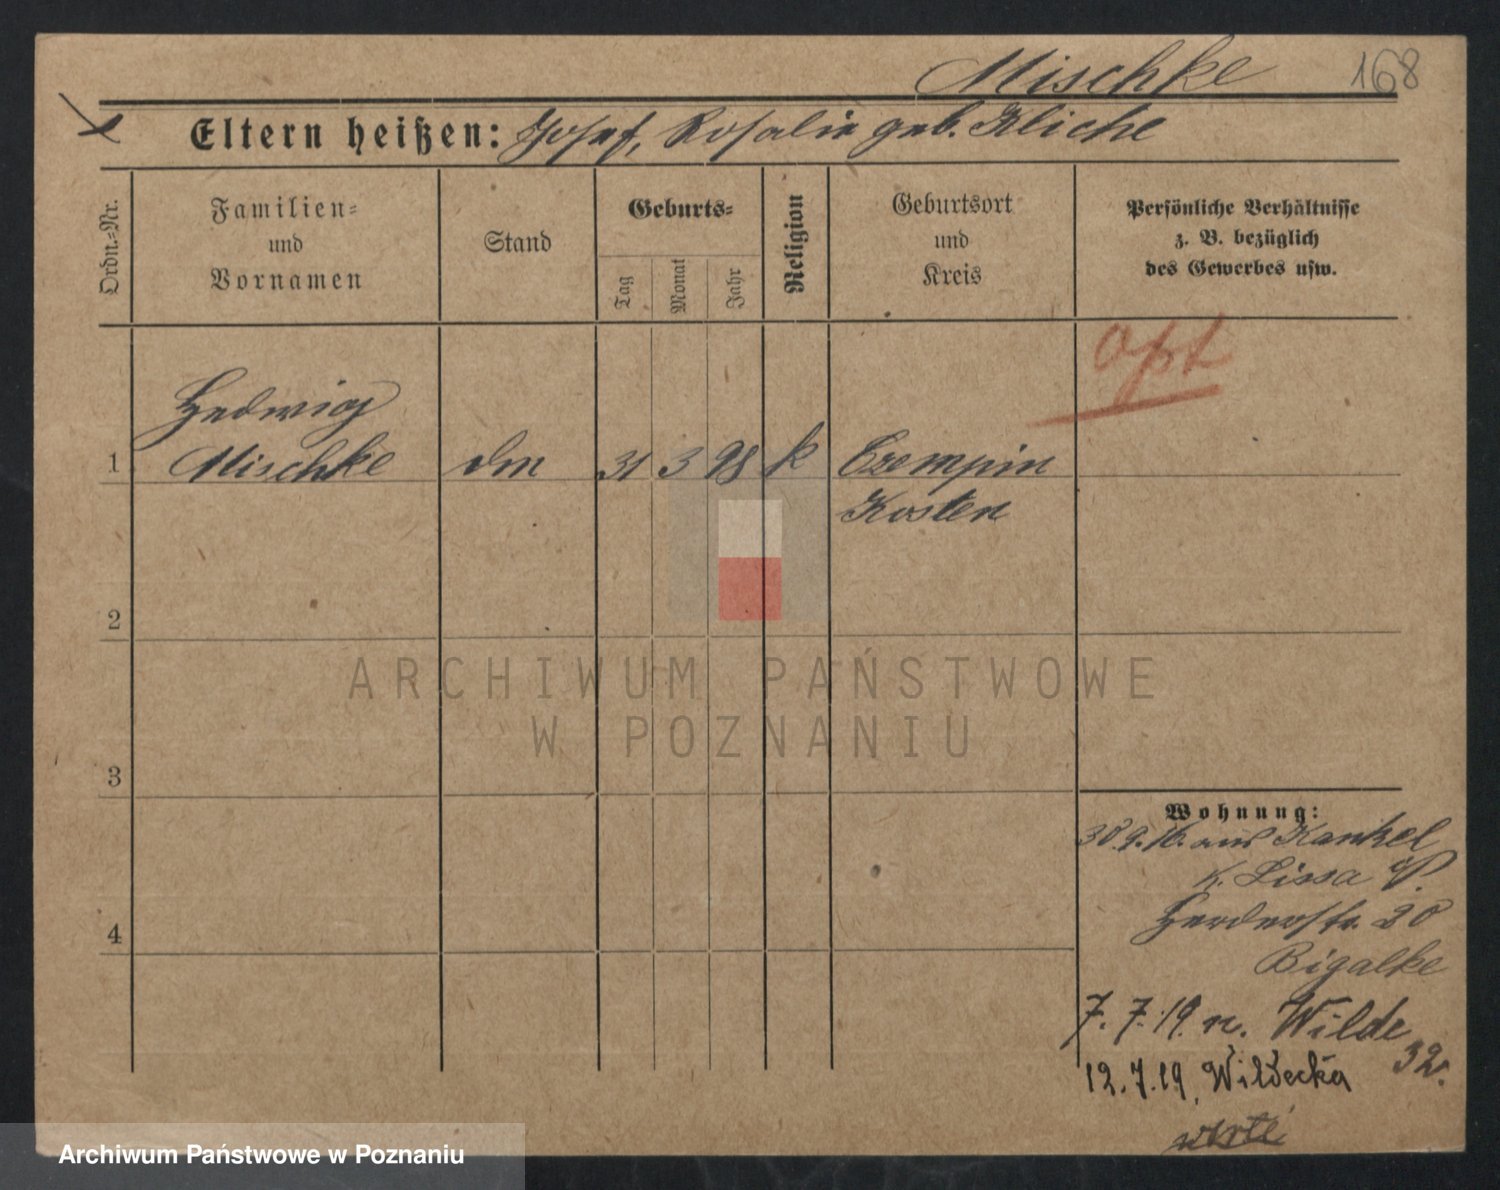 Mischke 168
Eltern heißen: Josef, Rosalie geb. Kliche
Ordn.=Nr.
Familien=
und
Vornamen
Stand
Geburts=
Tag
Monat
Jahr
Religion
Geburtsort
und
Kreis
Persönliche Verhältnisse
z. B. bezüglich
des Gewerbes usw.
Opt
Hedwig
1 Mischke dm 31 3 98 k Czempin
Kosten
2
ARCHIWUM PAŃSTWOWE
W POZNANIU
3
Wohnung:
30.9.16. aus Kankel
K. Lissa
Herderstr. 20
Bigalke
4
7.7.19. n. Wilde
32.
12.7.19. Wildecka
Archiwum Państwowe w Poznaniu